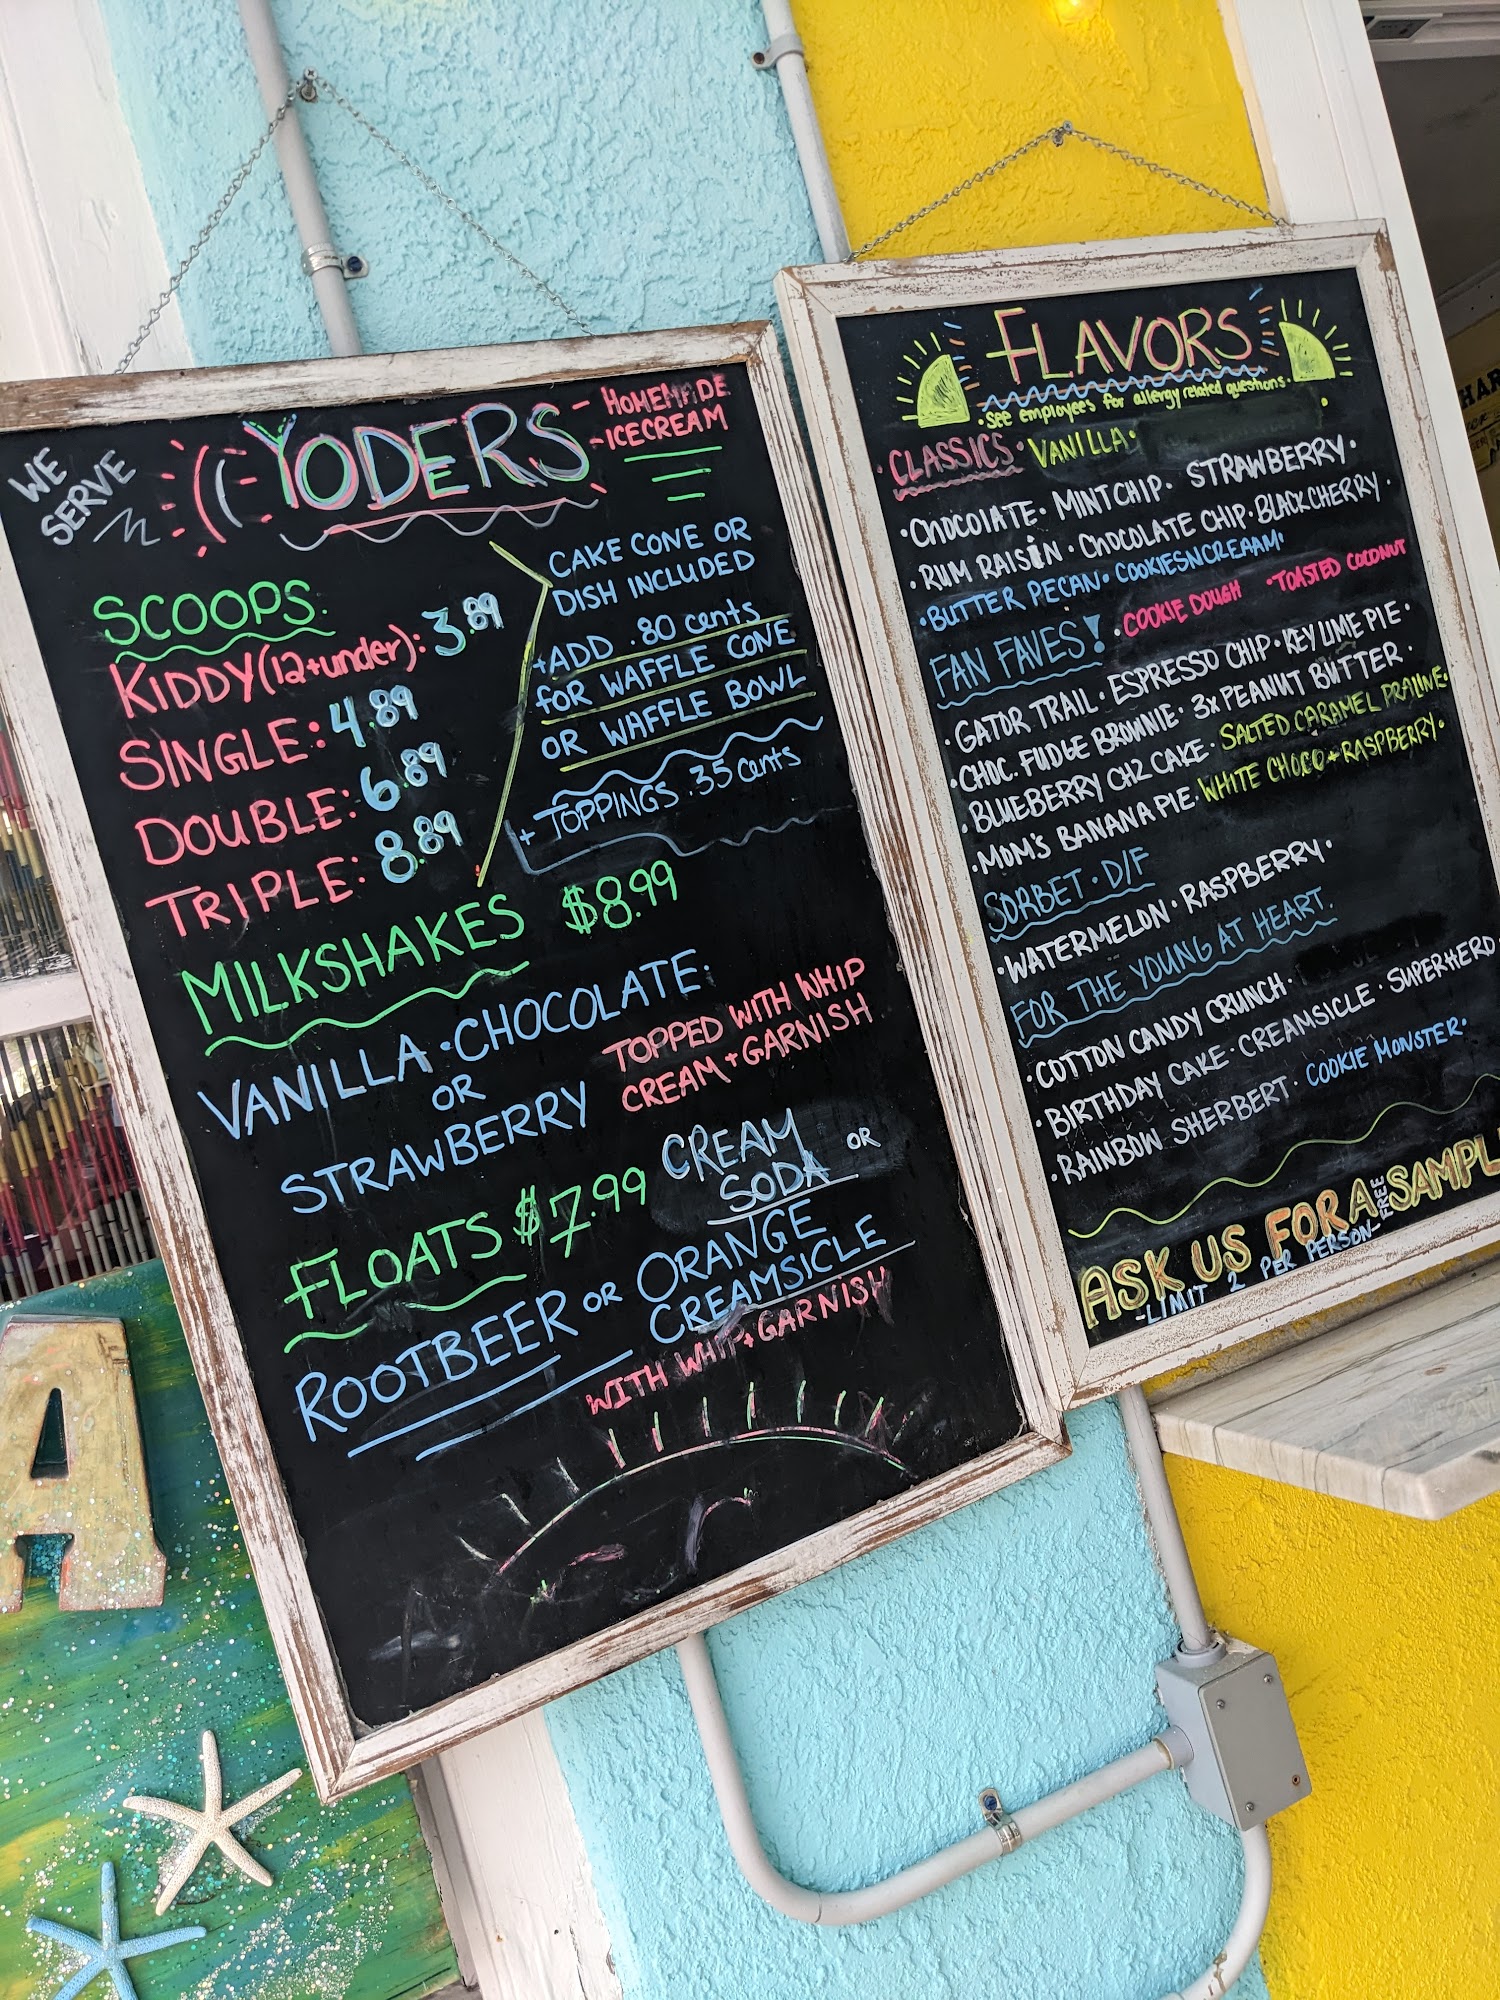 WE
SERVE
YODERS
- HOMEMADE
- ICECREAM
SCOOPS:
KIDDY (12+under): 3.89
SINGLE: 4.89
DOUBLE: 6.89
TRIPLE: 8.89
CAKE CONE OR
DISH INCLUDED
+ADD .80 cents
for WAFFLE CONE
OR WAFFLE BOWL
+ TOPPINGS .35 cents
MILKSHAKES $8.99
VANILLA • CHOCOLATE
OR
STRAWBERRY
TOPPED WITH WHIP
CREAM + GARNISH
FLOATS $7.99
CREAM
SODA OR
ROOTBEER OR ORANGE
CREAMSICLE
WITH WHIP + GARNISH
FLAVORS
• See employees for allergy related questions.
• CLASSICS • VANILLA •
• CHOCOLATE • MINT CHIP • STRAWBERRY •
• RUM RAISIN • CHOCOLATE CHIP • BLACK CHERRY •
• BUTTER PECAN • COOKIESNCREAAM •
FAN FAVES! • COOKIE DOUGH • TOASTED COCONUT
• GATOR TRAIL • ESPRESSO CHIP • KEY LIME PIE •
• CHOC. FUDGE BROWNIE • 3x PEANUT BUTTER •
• BLUEBERRY CHZ CAKE • SALTED CARAMEL PRALINE •
• MOM'S BANANA PIE • WHITE CHOCO + RASPBERRY •
SORBET • D/F
• WATERMELON • RASPBERRY •
FOR THE YOUNG AT HEART.
• COTTON CANDY CRUNCH •
• BIRTHDAY CAKE • CREAMSICLE • SUPERHERO
• RAINBOW SHERBERT • COOKIE MONSTER •
ASK US FOR A FREE SAMPL
-LIMIT 2 PER PERSON-
A
HAR